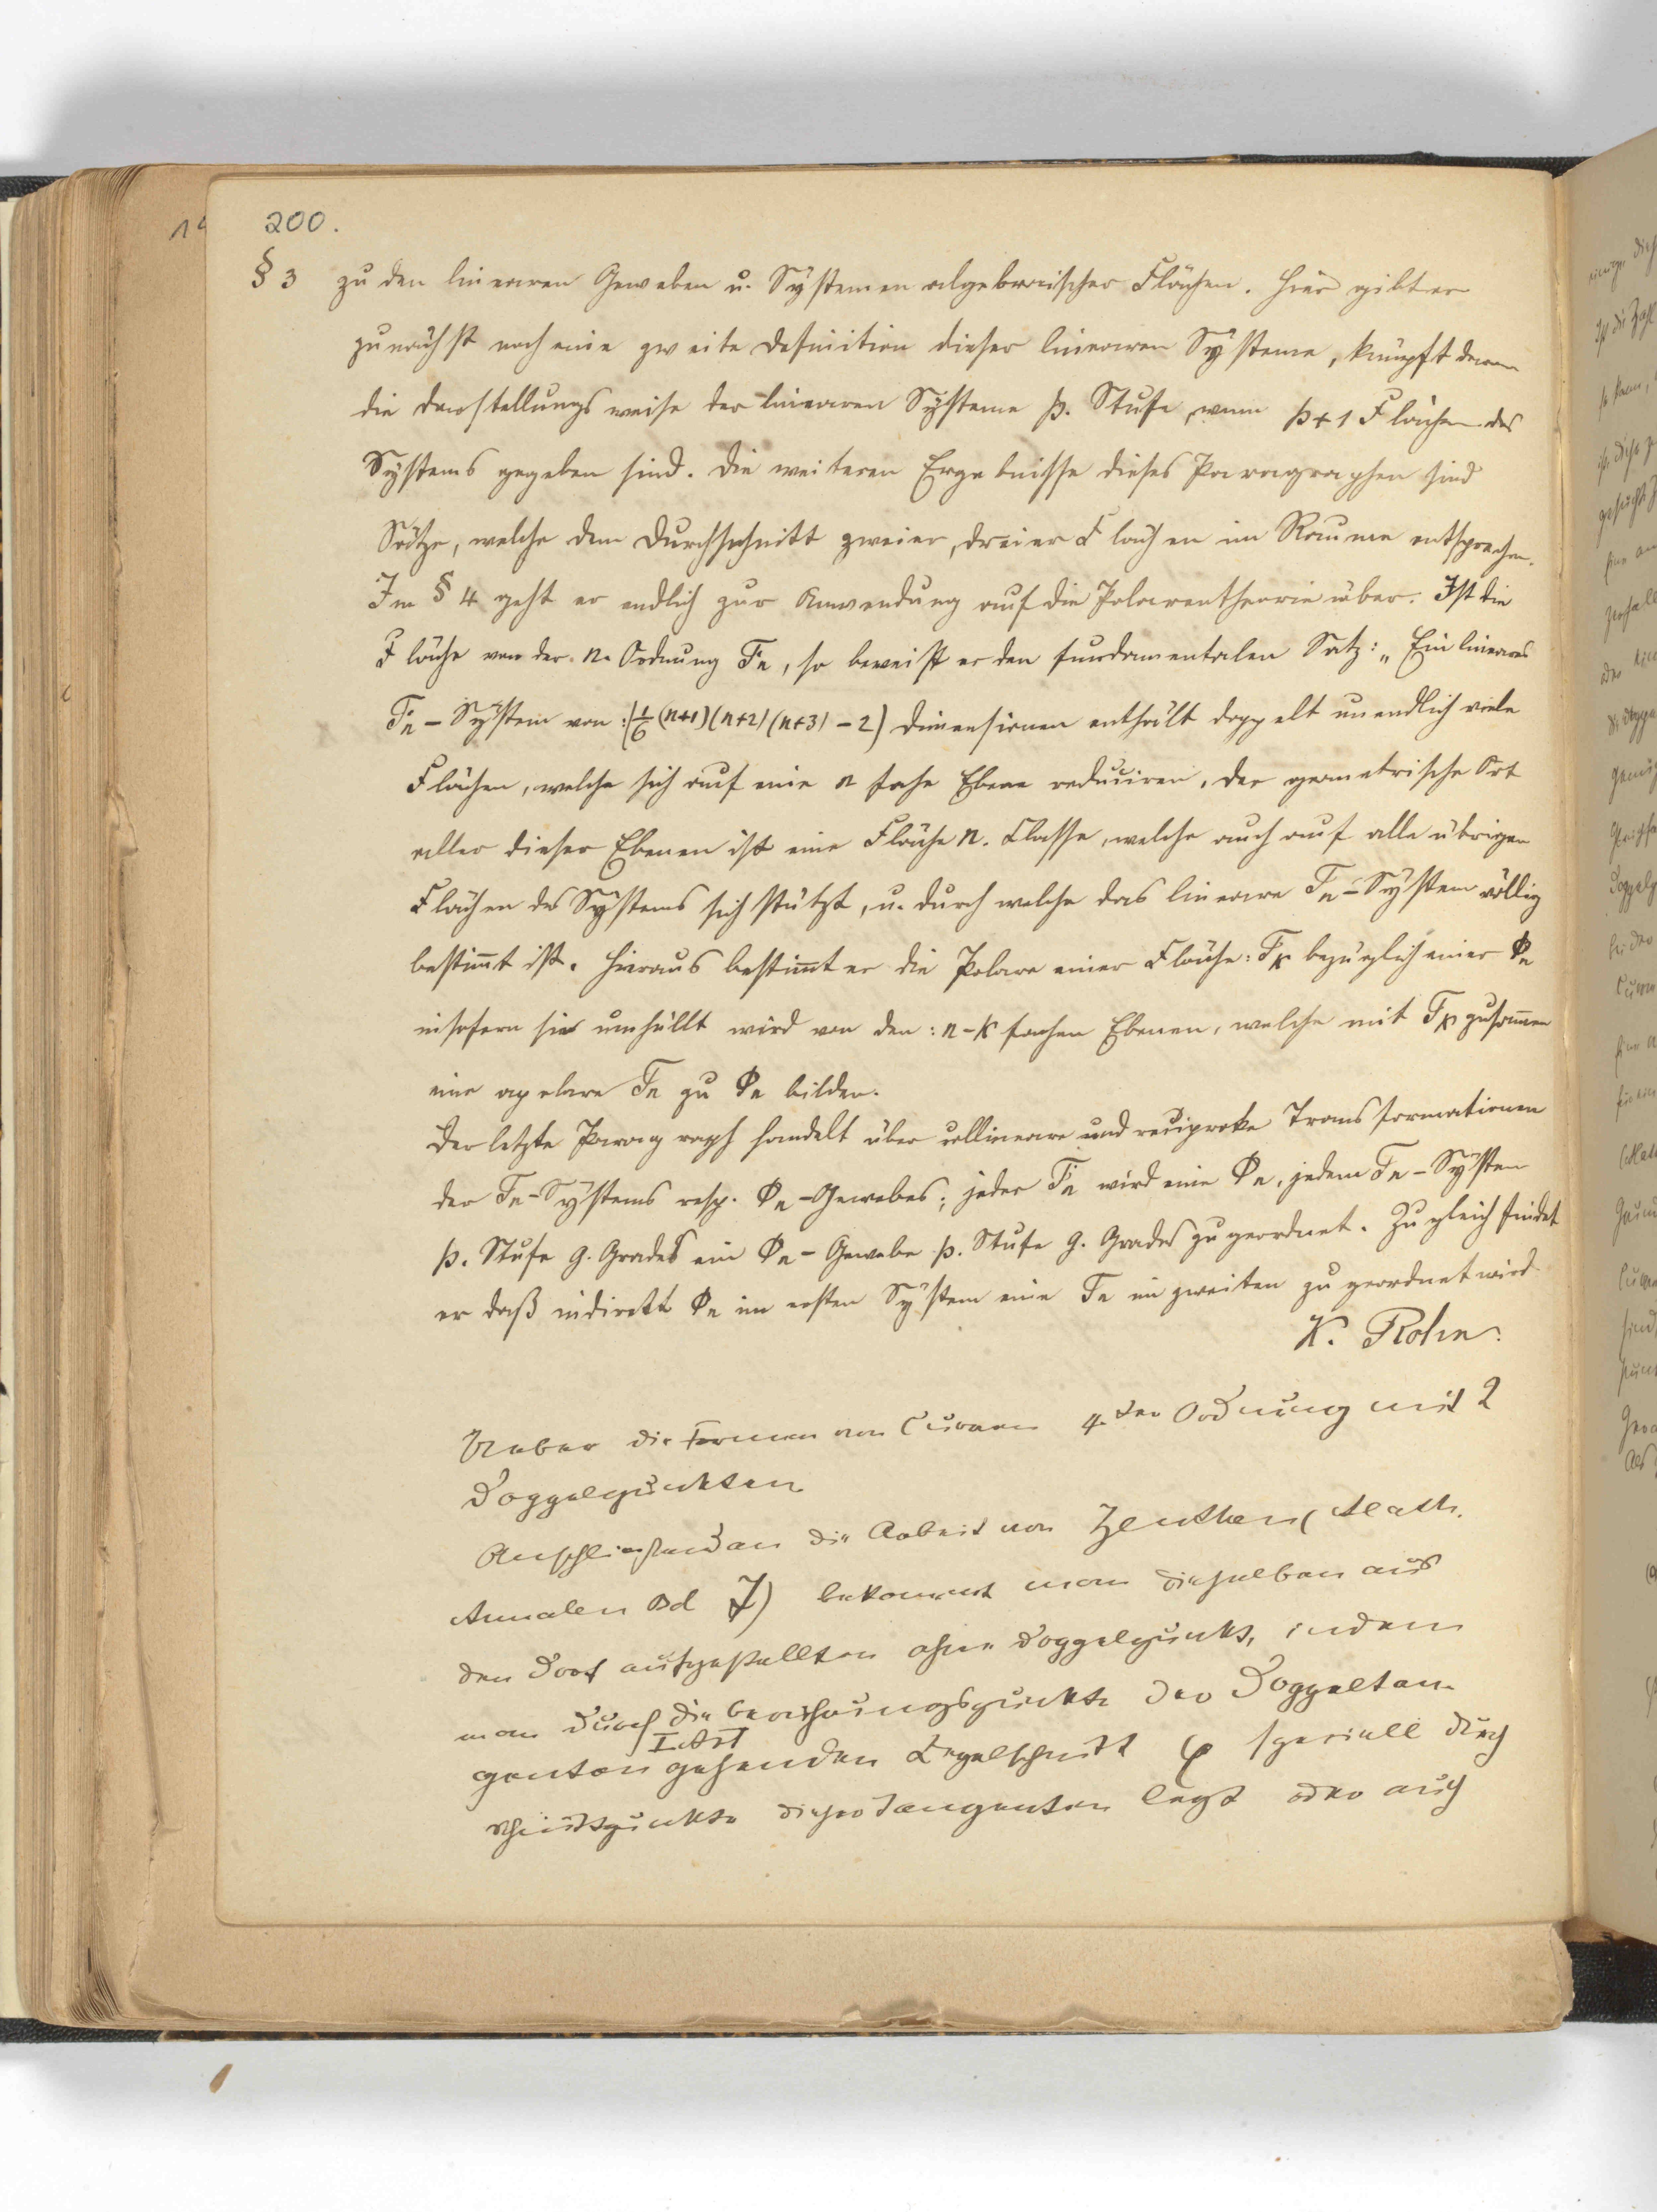 200.
§ 3 zu den linearen Geweben u. Systemen algebraischer Flächen. Hier gibt er
zunächst noch eine zweite Definition dieser linearen Systeme, knüpft daran
die Darstellungsweise der linearen Systeme p. Stufe, wenn p+1 Flächen des
Systems gegeben sind. Die weiteren Ergebnisse dieses Paragraphen sind
Sätze, welche dem Durchschnitt zweier, dreier Flächen im Raume entsprechen.
Im § 4 geht er endlich zur Anwendung auf die Polarentheorie über. Ist die
Fläche von der n. Ordnung Fn, so beweist er den fundamentalen Satz: „Ein lineares
Fn - System von: (1/6 (n+1)(n+2)(n+3) - 2) Dimensionen enthält doppelt unendlich viele
Flächen, welche sich auf eine n fache Ebene reduciren, der geometrische Ort
aller dieser Ebenen ist eine Fläche n. Classe, welche auch auf alle übrigen
Flächen des Systems sich stützt, u. durch welche das lineare Fn - System völlig
bestimt ist. Hieraus bestimt er die Polare einer Fläche: Fk bezüglich einer Φn
insofern sie umhüllt wird von den: n-k fachen Ebenen, welche mit Fk zusamen
eine apolare Fn zu Φn bilden.
Der letzte Paragraph handelt über collineare und reciproke Transformationen
der Fn-Systems resp. Φn-Gewebes; jeder Fn wird eine Φn, jedem Fn-System
p. Stufe q. Grades ein Φn-Gewebe p. Stufe q. Grades zugeordnet. Zugleich findet
er daß indirekt Φn im ersten System eine Fn im zweiten zugeordnet wird
K. Rohn.
Ueber die Formen von Curven 4.ter Ordnung mit 2
Doppelpunkten
Anschließend an die Arbeit von Zeuthen (Math.
Annalen Bd 7) bekommt man dieselben aus
den dort aufgestellten ohne Doppelpunkt, indem
man durch die Berührungspunkte der Doppeltan-
I. Art
genten gehenden Kegelschnitt speciell durch
Schnittpunkte dieser Tangenten legt oder auch